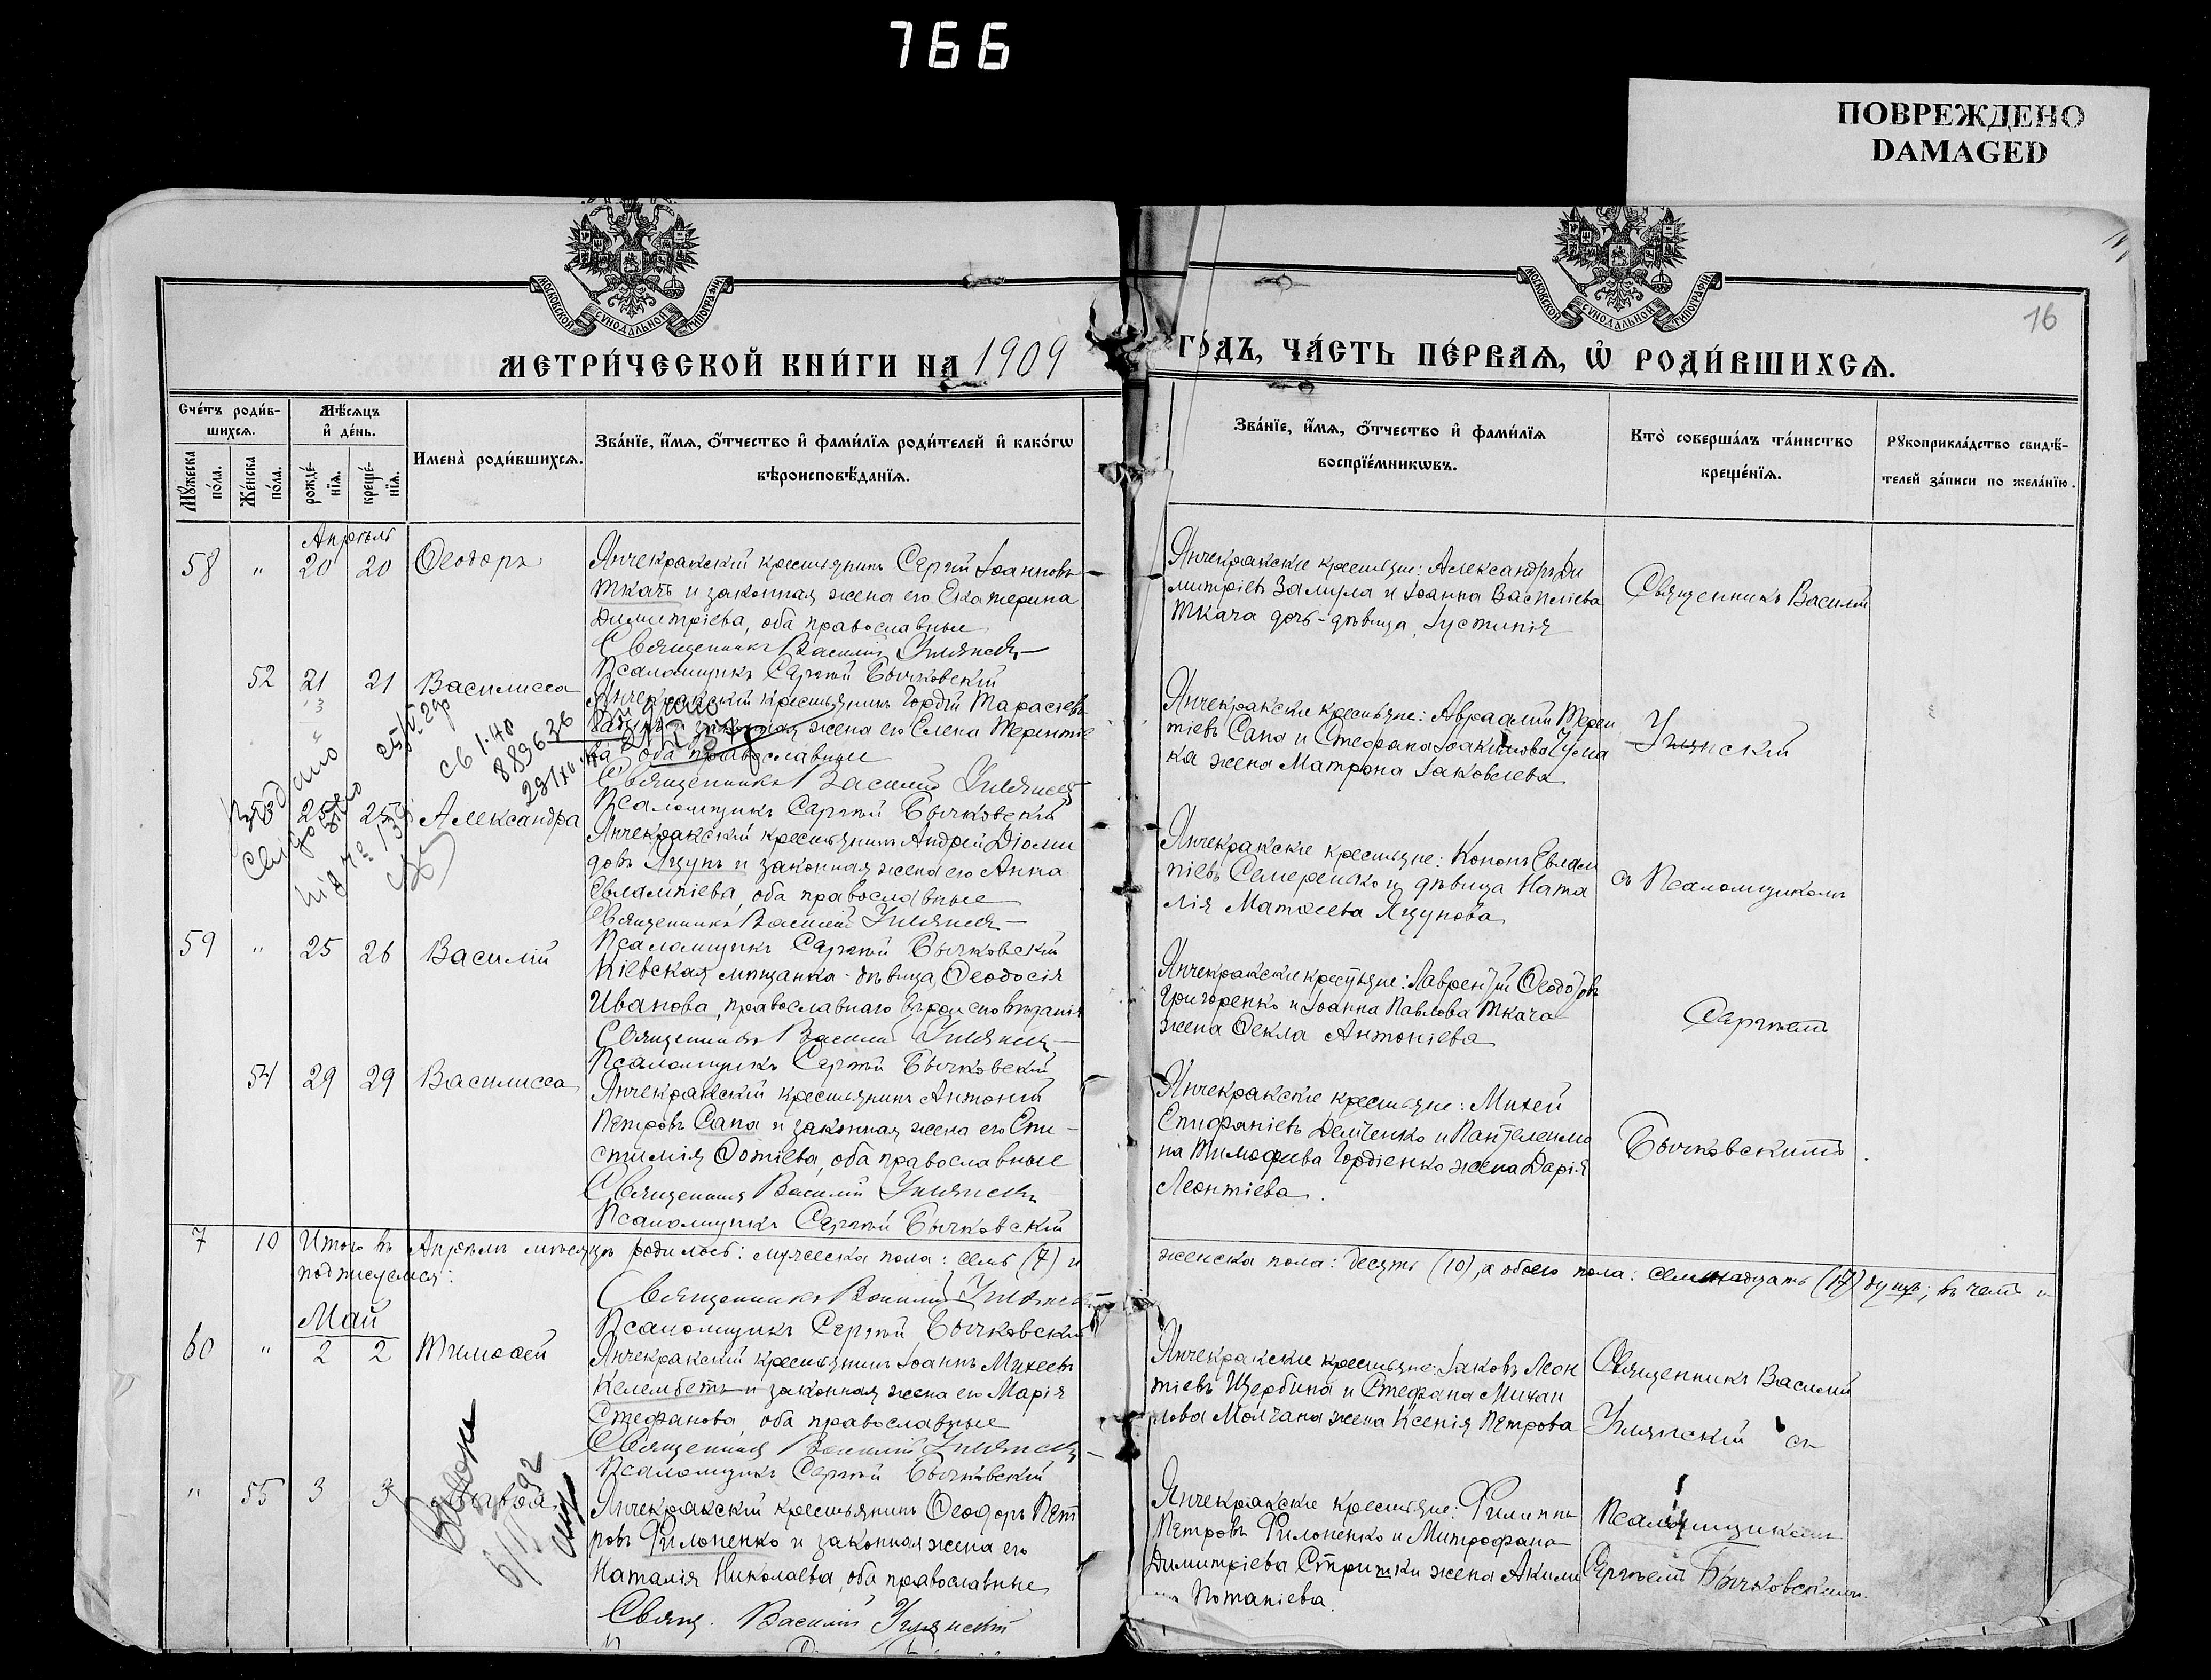 766
ПОВРЕЖДЕНО
DAMAGED
МОСКОВСКОЙ СѴНОДАЛЬНОЙ ТИПОГРАФІИ
МОСКОВСКОЙ СѴНОДАЛЬНОЙ ТИПОГРАФІИ
16
МЕТРИ́ЧЕСКОЙ КНИ́ГИ НА 1909
ГО́ДЪ, ЧА́СТЬ ПЕ́РВАѦ, Ѡ҆ РОДИ́ВШИХСѦ.
Сче́тъ роди́в-
шихсѧ.
Мꙋ́жеска по́ла.
Же́нска по́ла.
Мѣ́сѧцъ
и҆ де́нь.
рожде́-
нїѧ.
креще́-
нїѧ.
Имена̀ роди́вшихсѧ.
Зва́нїе, и҆́мѧ, ѻ҆́тчество и҆ фами́лїѧ роди́телей и҆ како́гѡ
вѣроисповѣ́данїѧ.
Зва́нїе, и҆́мѧ, ѻ҆́тчество и҆ фами́лїѧ
воспрїе́мникѡвъ.
Кто̀ соверша́лъ та́инство
креще́нїѧ.
Рꙋкоприкла́дство свидѣ́-
телей за́писи по жела́нїю.
Апрѣль
58 " 20 20 Ѳеодоръ
Янчекракскій крестьянинъ Сергѣй Іоанновъ
Ткачъ и законная жена его Екатерина
Димитріева, оба православные
Священникъ Василій
Псаломщикъ Сергѣй Бычковскій
Янчекракскіе крестьяне: Александръ Ди
митріевъ Замула и Іоанна Василіева
Ткача дочь-дѣвица, Іустинія
Священникъ Василій
52 21 21 Василисса
Янчекракскій крестьянинъ Гордій Тарасіевъ
законная жена его Елена Терентіе
ва оба православные
Священникъ Василій
Псаломщикъ Сергѣй Бычковскій
Янчекракскіе крестьяне: Авраамій Терен
тіевъ Сапа и Стефана Іоакимова Чума
ка жена Матрона Іаковлева
889636
53 25 25 Александра
Янчекракскій крестьянинъ Андрей Діоми
довъ Яцунъ и законная жена его Анна
Евлампіева, оба православные
Священникъ Василій
Псаломщикъ Сергѣй Бычковскій
Янчекракскіе крестьяне: Кононъ Евлам
піевъ Семеренко и дѣвица Ната
лія Матѳеева Яцунова
съ Псаломщикомъ
59 " 25 26 Василій
Кіевская мѣщанка-дѣвица Ѳеодосія
Иванова, православнаго вѣроисповѣданія
Священникъ Василій
Псаломщикъ Сергѣй Бычковскій
Янчекракскіе крестьяне: Лаврентій Ѳеодоровъ
Григоренко и Іоанна Павлова Ткача
жена Ѳекла Антоніева
Сергѣемъ
54 29 29 Василисса
Янчекракскій крестьянинъ Антоній
Петровъ Сапа и законная жена его Епи-
стимія Фотіева, оба православные
Священникъ Василій
Псаломщикъ Сергѣй Бычковскій
Янчекракскіе крестьяне: Михей
Епифаніевъ Демченко и Пантелеимо
на Тимоѳеева Гордіенко жена Дарія
Леонтіева.
Бычковскимъ.
7 10 Итого въ Апрѣлѣ мѣсяцѣ родилось: мужеска пола: семь (7) и
женска пола: десять (10), а обоего пола: семнадцать (17) душъ; въ чемъ и
подписуемся:
Священникъ Василій
Псаломщикъ Сергѣй Бычковскій
Май
60 " 2 2 Тимоѳей
Янчекракскій крестьянинъ Іоаннъ Михеевъ
Келембетъ и законная жена его Марія
Стефанова, оба православные
Священникъ Василій
Псаломщикъ Сергѣй Бычковскій
Янчекракскіе крестьяне: Іаковъ Леон
тіевъ Щербина и Стефана Михаи
лова Молчана жена Ксенія Петрова
Священникъ Василій
съ
" 55 3 3
Янчекракскій крестьянинъ Ѳеодоръ Пет
ровъ Филоненко и законная жена его
Наталія Николаева, оба православные
Свящ. Василій
Янчекракскіе крестьяне: Филиппъ
Петровъ Филоненко и Митрофана
Димитріева Стрижки жена Акили
на Потапіева.
Псаломщикомъ
Сергѣемъ Бычковскимъ.